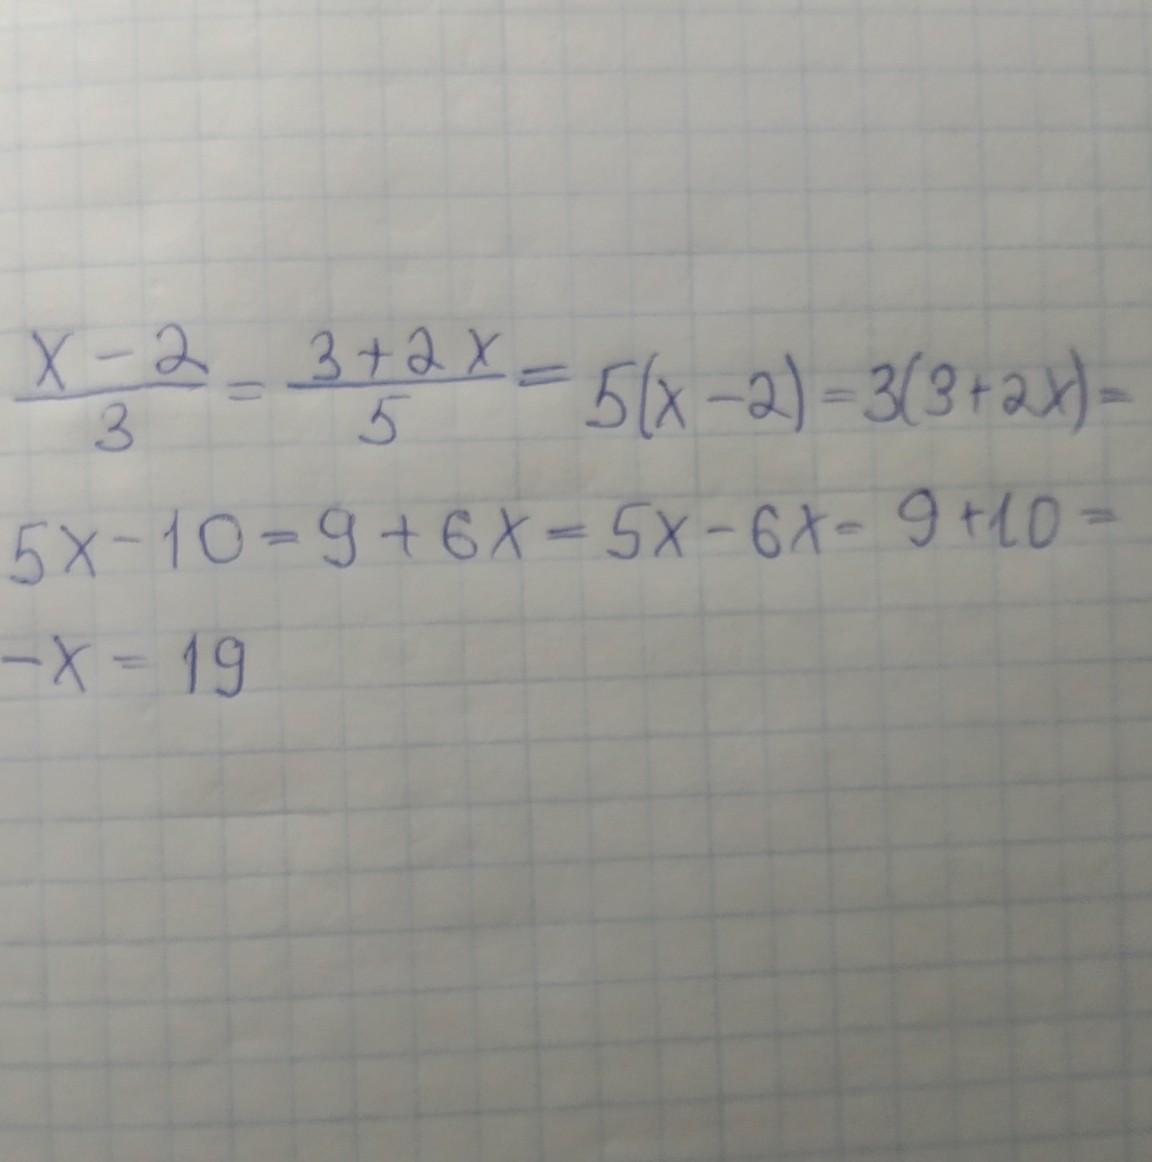 x-2/3 = 3+2x/5 = 5(x-2) = 3(3+2x) =
5x-10 = 9+6x = 5x-6x = 9+10 =
-x = 19